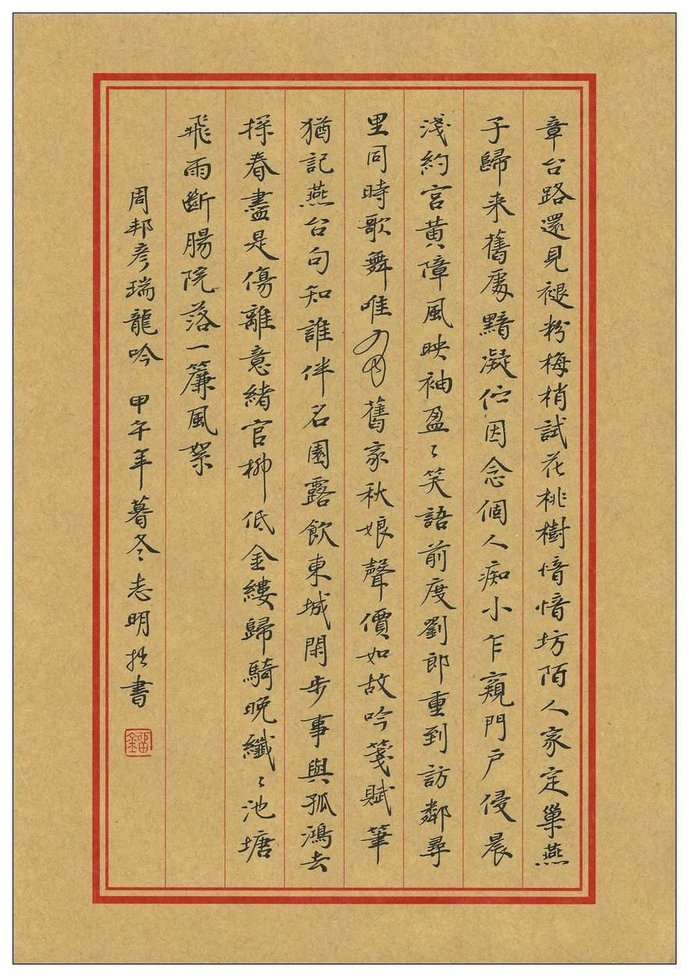 章台路還見褪粉梅梢試花桃樹愔愔坊陌人家定巢燕
子歸来舊處黯凝佇因念個人痴小乍窺門戶侵晨
淺約宮黃障風映袖盈〻笑語前度劉郎重到訪鄰尋
里同時歌舞唯有舊家秋娘聲價如故吟箋賦筆
猶記燕台句知誰伴名園露飲東城閑步事與孤鴻去
探春盡是傷離意緒官柳低金縷歸騎晚纖〻池塘
飛雨斷腸院落一簾風絮
周邦彥瑞龍吟 甲午年暮冬志明拙書